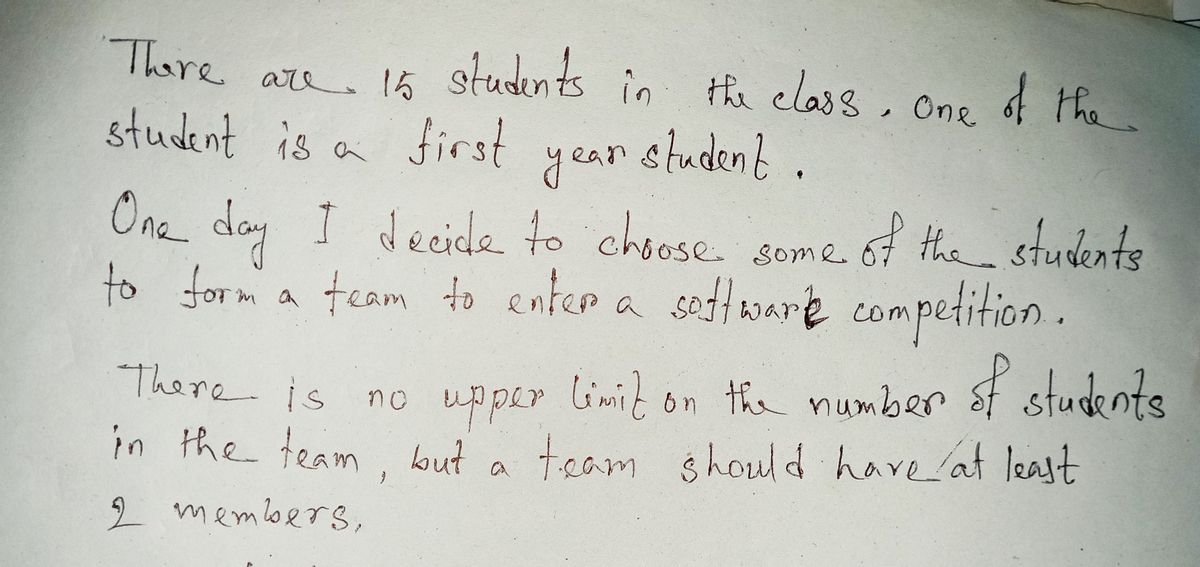 There are 15 students in the class, One of the
student is a first year student.
One day I decide to choose some of the students
to form a team to enter a software competition.
There is no upper limit on the number of students
in the team, but a team should have at least
2 members.